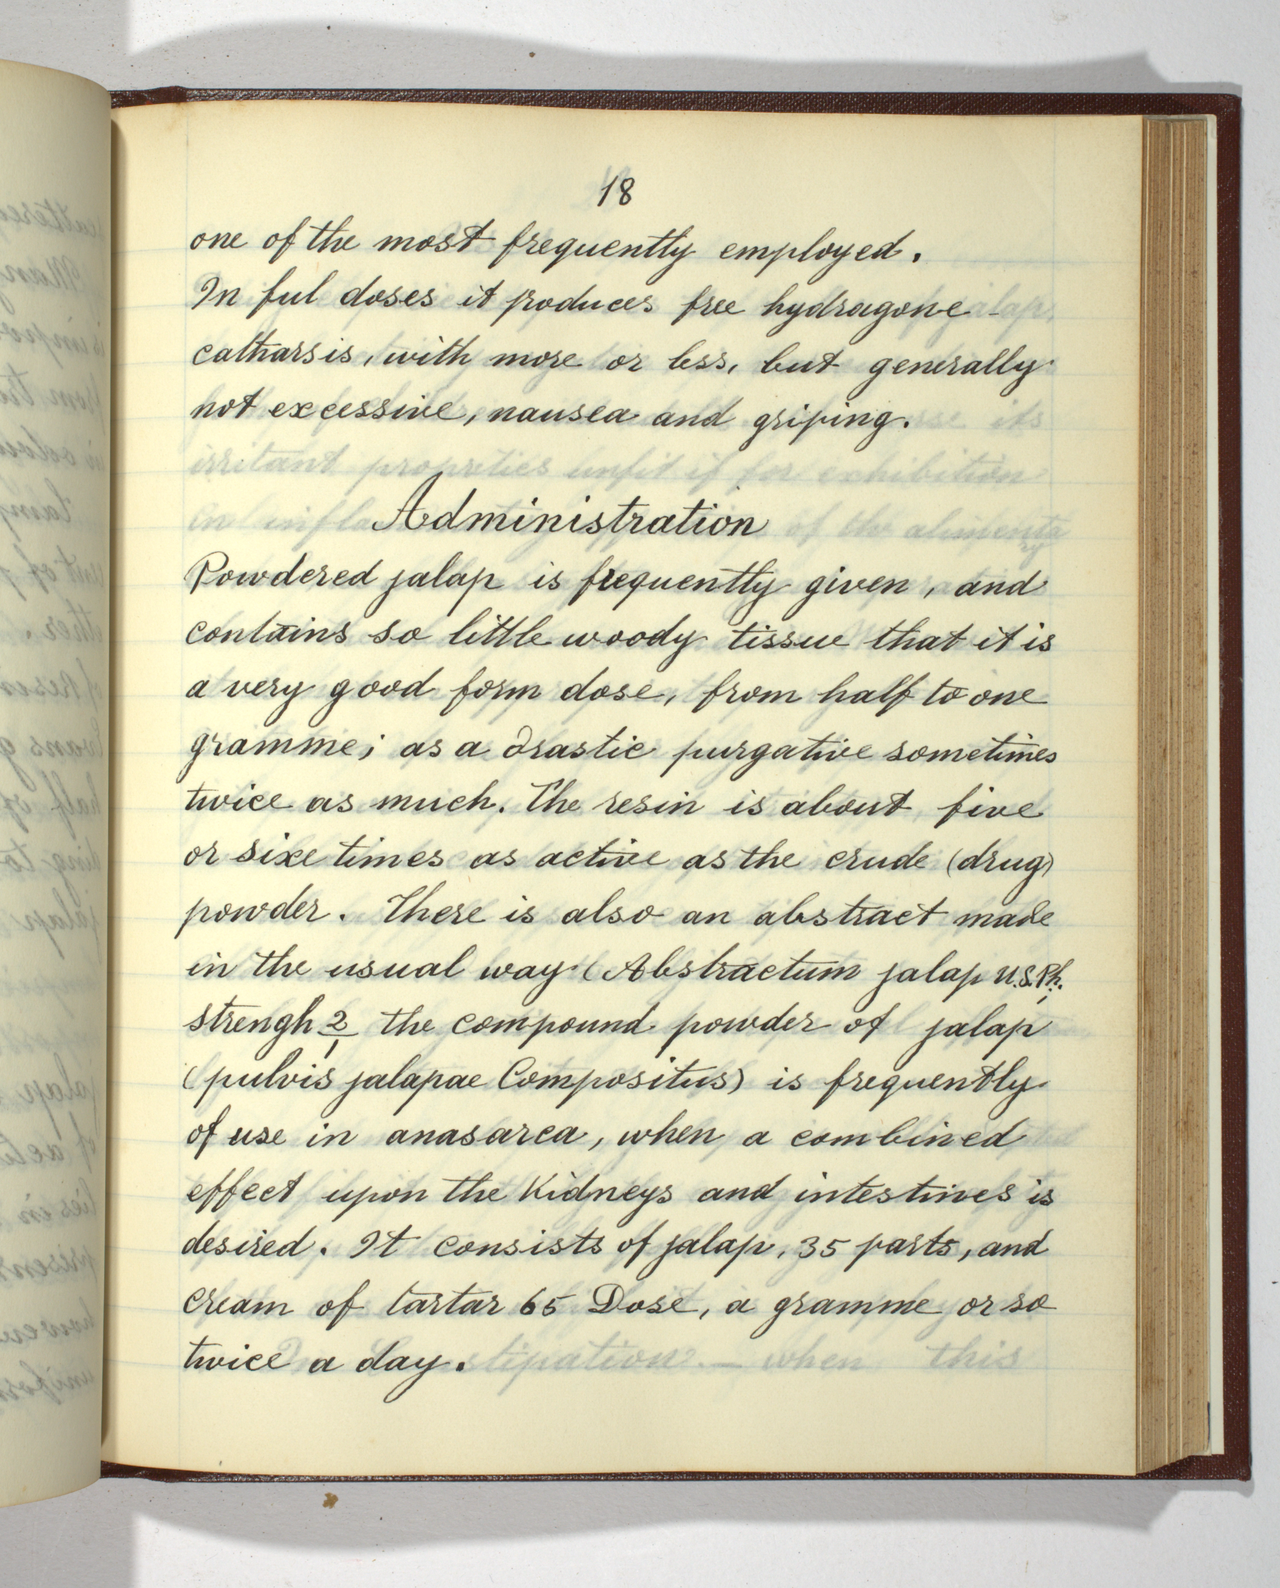 18
one of the most frequently employed.
In ful doses it produces free hydragone
catharsis, with more or less, but generally
not excessive, nausea and griping.
Administration
Powdered jalap is frequently given, and
contains so little woody tissue that it is
a very good form dose, from half to one
gramme; as a drastic purgative sometimes
twice as much. The resin is about five
or sixe times as active as the crude (drug)
powder. There is also an abstract made
in the usual way (Abstractum jalap U.S.Ph.
strengh 2/1 the compound powder of jalap
(pulvis jalapae Compositus) is frequently
of use in anasarca, when a combined
effect upon the Kidneys and intestines is
desired. It consists of jalap, 35 parts, and
cream of tartar 65 Dose, a gramme or so
twice a day.